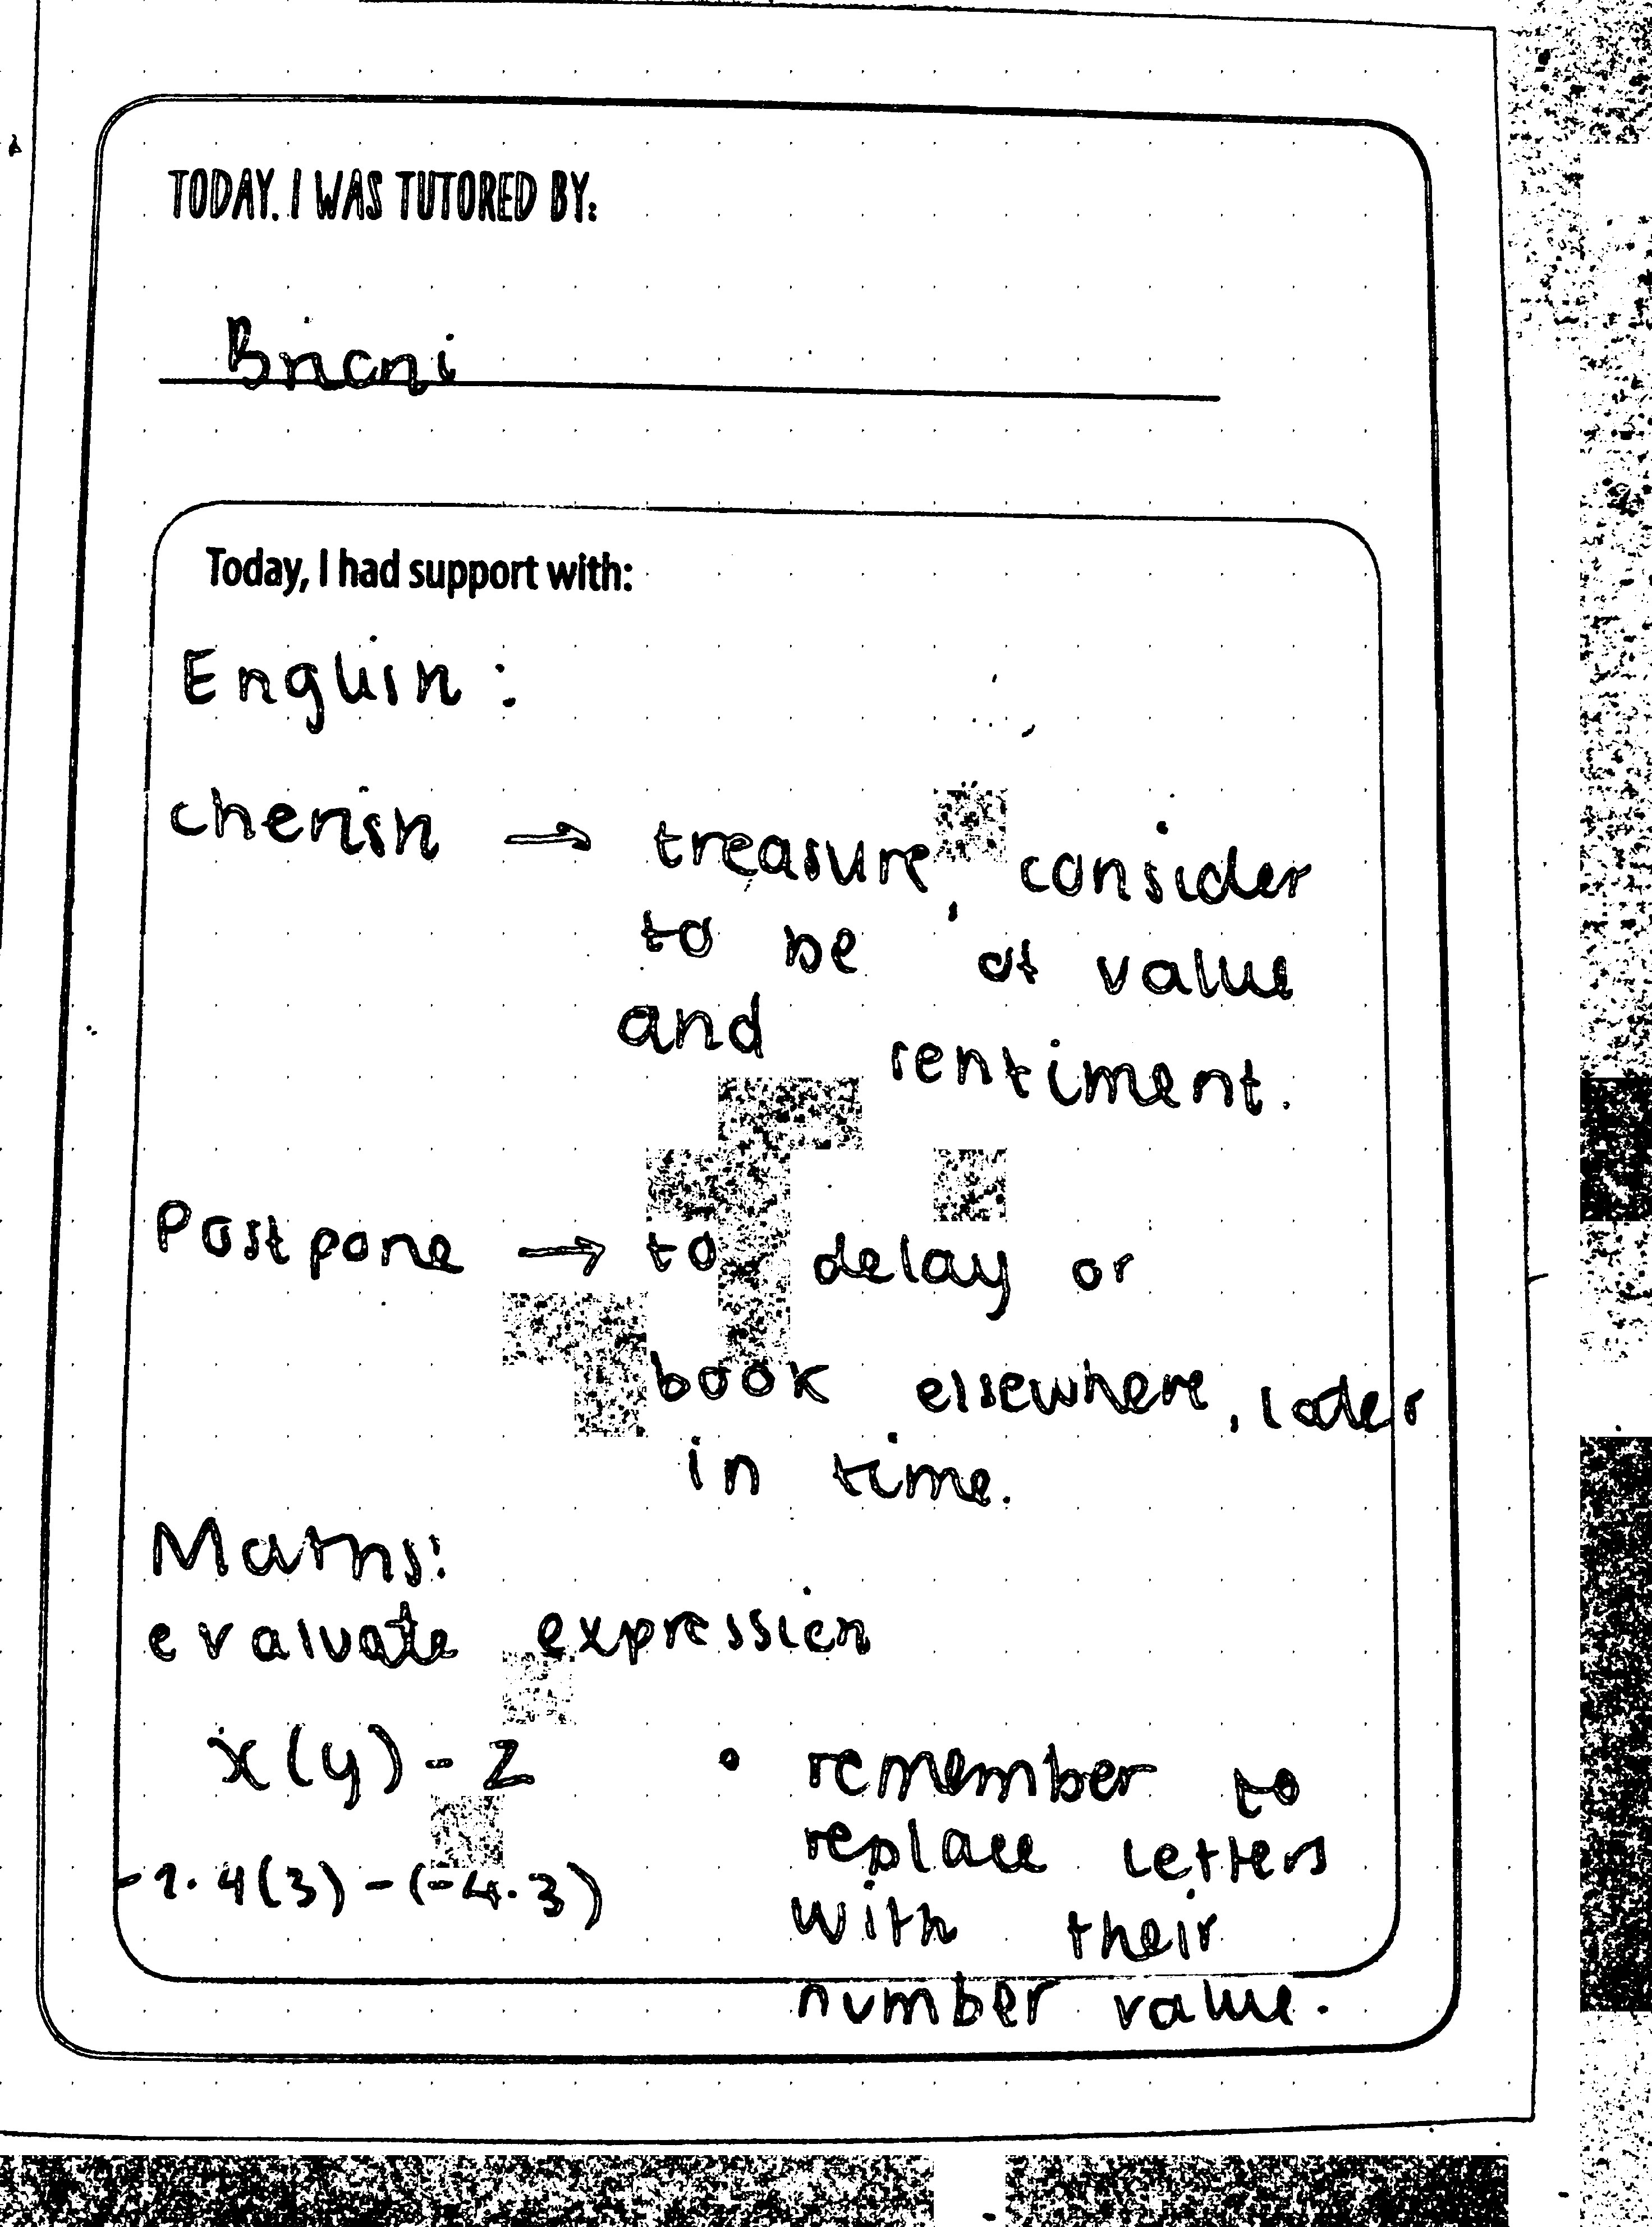 TODAY, I WAS TUTORED BY:
Briani
Today, I had support with:
English:
cherish → treasure, consider
to be of value
and sentiment.
Postpone → to delay or
book elsewhere, later
in time.
Maths:
evaluate expression
x(y) - z
• remember to
replace letters
with their
number value.
-1.4(3) - (-4.3)